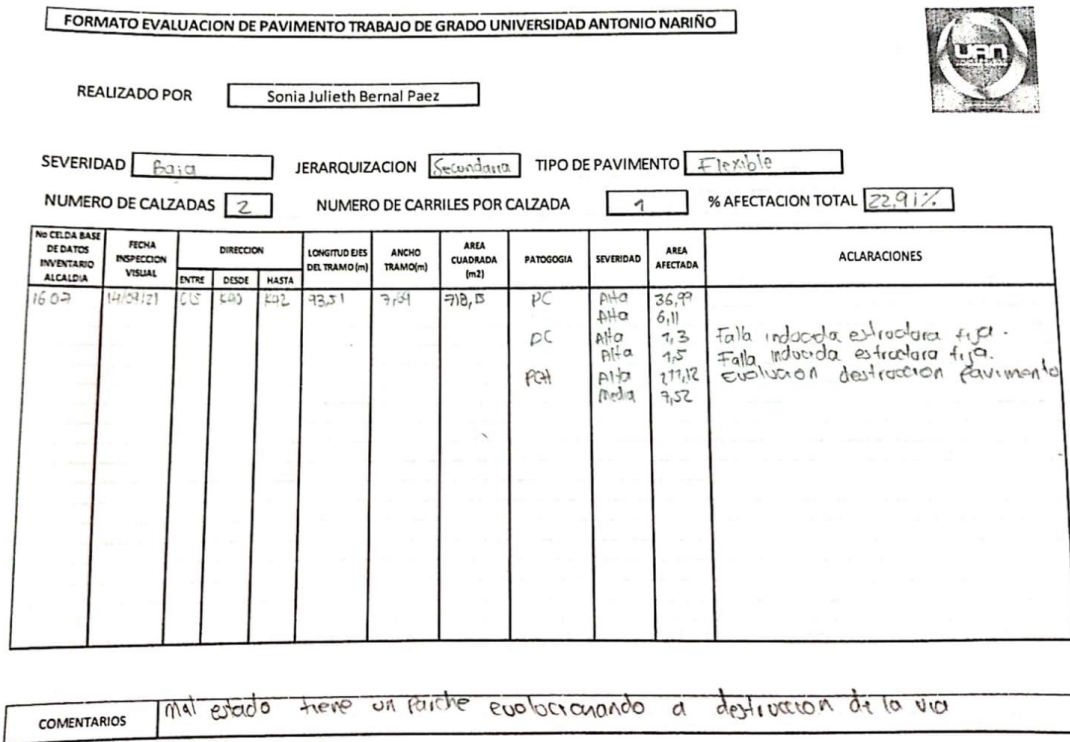 FORMATO EVALUACION DE PAVIMENTO TRABAJO DE GRADO UNIVERSIDAD ANTONIO NARIÑO
UAN
REALIZADO POR Sonia Julieth Bernal Paez
SEVERIDAD Baja JERARQUIZACION Secundaria TIPO DE PAVIMENTO Flexible
NUMERO DE CALZADAS 2 NUMERO DE CARRILES POR CALZADA 1 % AFECTACION TOTAL 22,91%
No CELDA BASE DE DATOS INVENTARIO ALCALDIA FECHA INSPECCION VISUAL DIRECCION ENTRE DESDE HASTA LONGITUD EJES DEL TRAMO (m) ANCHO TRAMO(m) AREA CUADRADA (m2) PATOGOGIA SEVERIDAD AREA AFECTADA ACLARACIONES
1607 93,51 PC Alta 36,99
Alta 6,11
Alta 1,3 Falla inducida estructura fija.
Alta 1,5 Falla inducida estructura fija.
PCH Alta Evolución destrucción pavimento
Media 7,52
COMENTARIOS Mal estado tiene un parche evolucionando a destruccion de la via